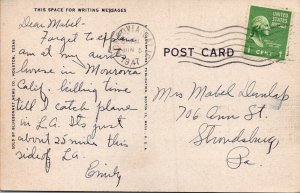 THIS SPACE FOR WRITING MESSAGES
Dear Mabel-
Forgot to explain
am at my aunt
house in Monrovia
Calif. killing time
till I catch plane
in L.A. Its just
about 25 miles this
side of L.A.
Emily
JUN 5
1947
1 CENT
POST CARD
Mrs Mabel Dunlap
706 Ann St.
Stroudsburg
Pa.